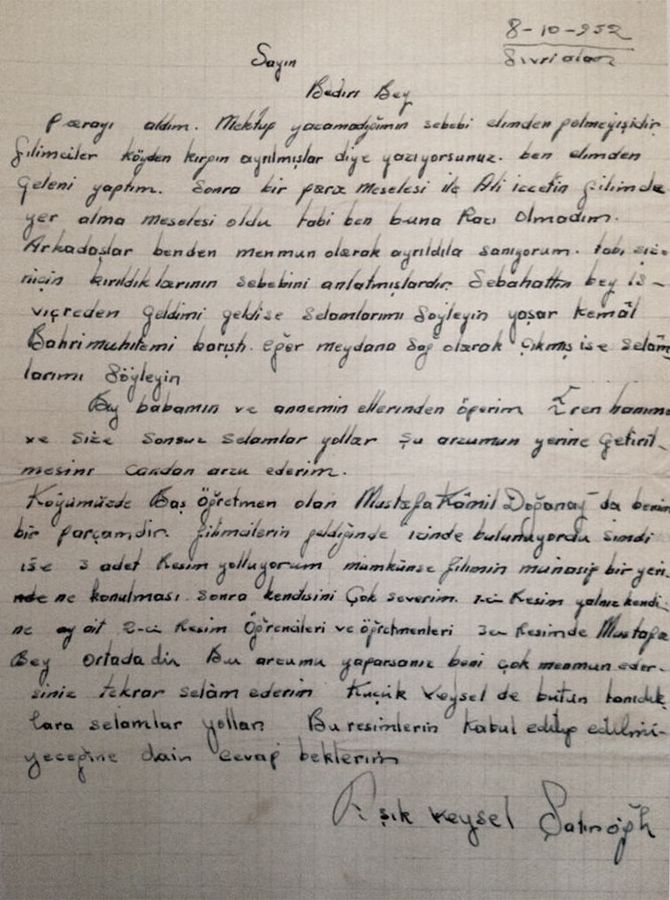 8-10-952
Sivrialan
Sayın
Bedri Bey
Parayı aldım. Mektup yazamadığımın sebebi elimden gelmeyişidir
filimciler köyden kırgın ayrılmışlar diye yazıyorsunuz. ben elimden
geleni yaptım. Sonra bir para meselesi ile Ali izzetin filimde
yer alma meselesi oldu tabi ben buna Razı olmadım.
Arkadaşlar benden memnun olarak ayrıldıla sanıyorum. tabi size
niçin kırıldıklarının sebebini anlatmışlardır. Sebahattin bey is-
viçreden geldimi geldise selamlarımı söyleyin yaşar kemâl
Bahrimuhitemi karıştı. eğer meydana sağ olarak çıkmış ise selâm
larımı söyleyin
Bey babamın ve annemin ellerinden öperim Eren hanıma
ve size sonsuz selamlar yollar şu arzumun yerine getiril-
mesini candan arzu ederim.
Köyümüzde Baş öğretmen olan Mustafa Kâmil Doğanay da benim
bir parçamdır. filimcilerin geldiğinde izinde bulunuyordu şimdi
ise 3 adet Resim yolluyorum mümkünse filimin münasip bir yeri
ne konulması. sonra kendisini çok severim. 1.ci Resim yalnız kendi-
ne ay ait 2-ci Resim öğrencileri ve öğretmenleri 3cü Resimde Mustafa
Bey ortadadır Bu arzumu yaparsanız beni çok memnun eder-
siniz tekrar selâm ederim Küçük Veysel de bütün tanıdık
lara selamlar yollar. Bu resimlerin kabul edilip edilmi-
yeceğine dair cevap beklerim
Aşık Veysel Şatıroğlu